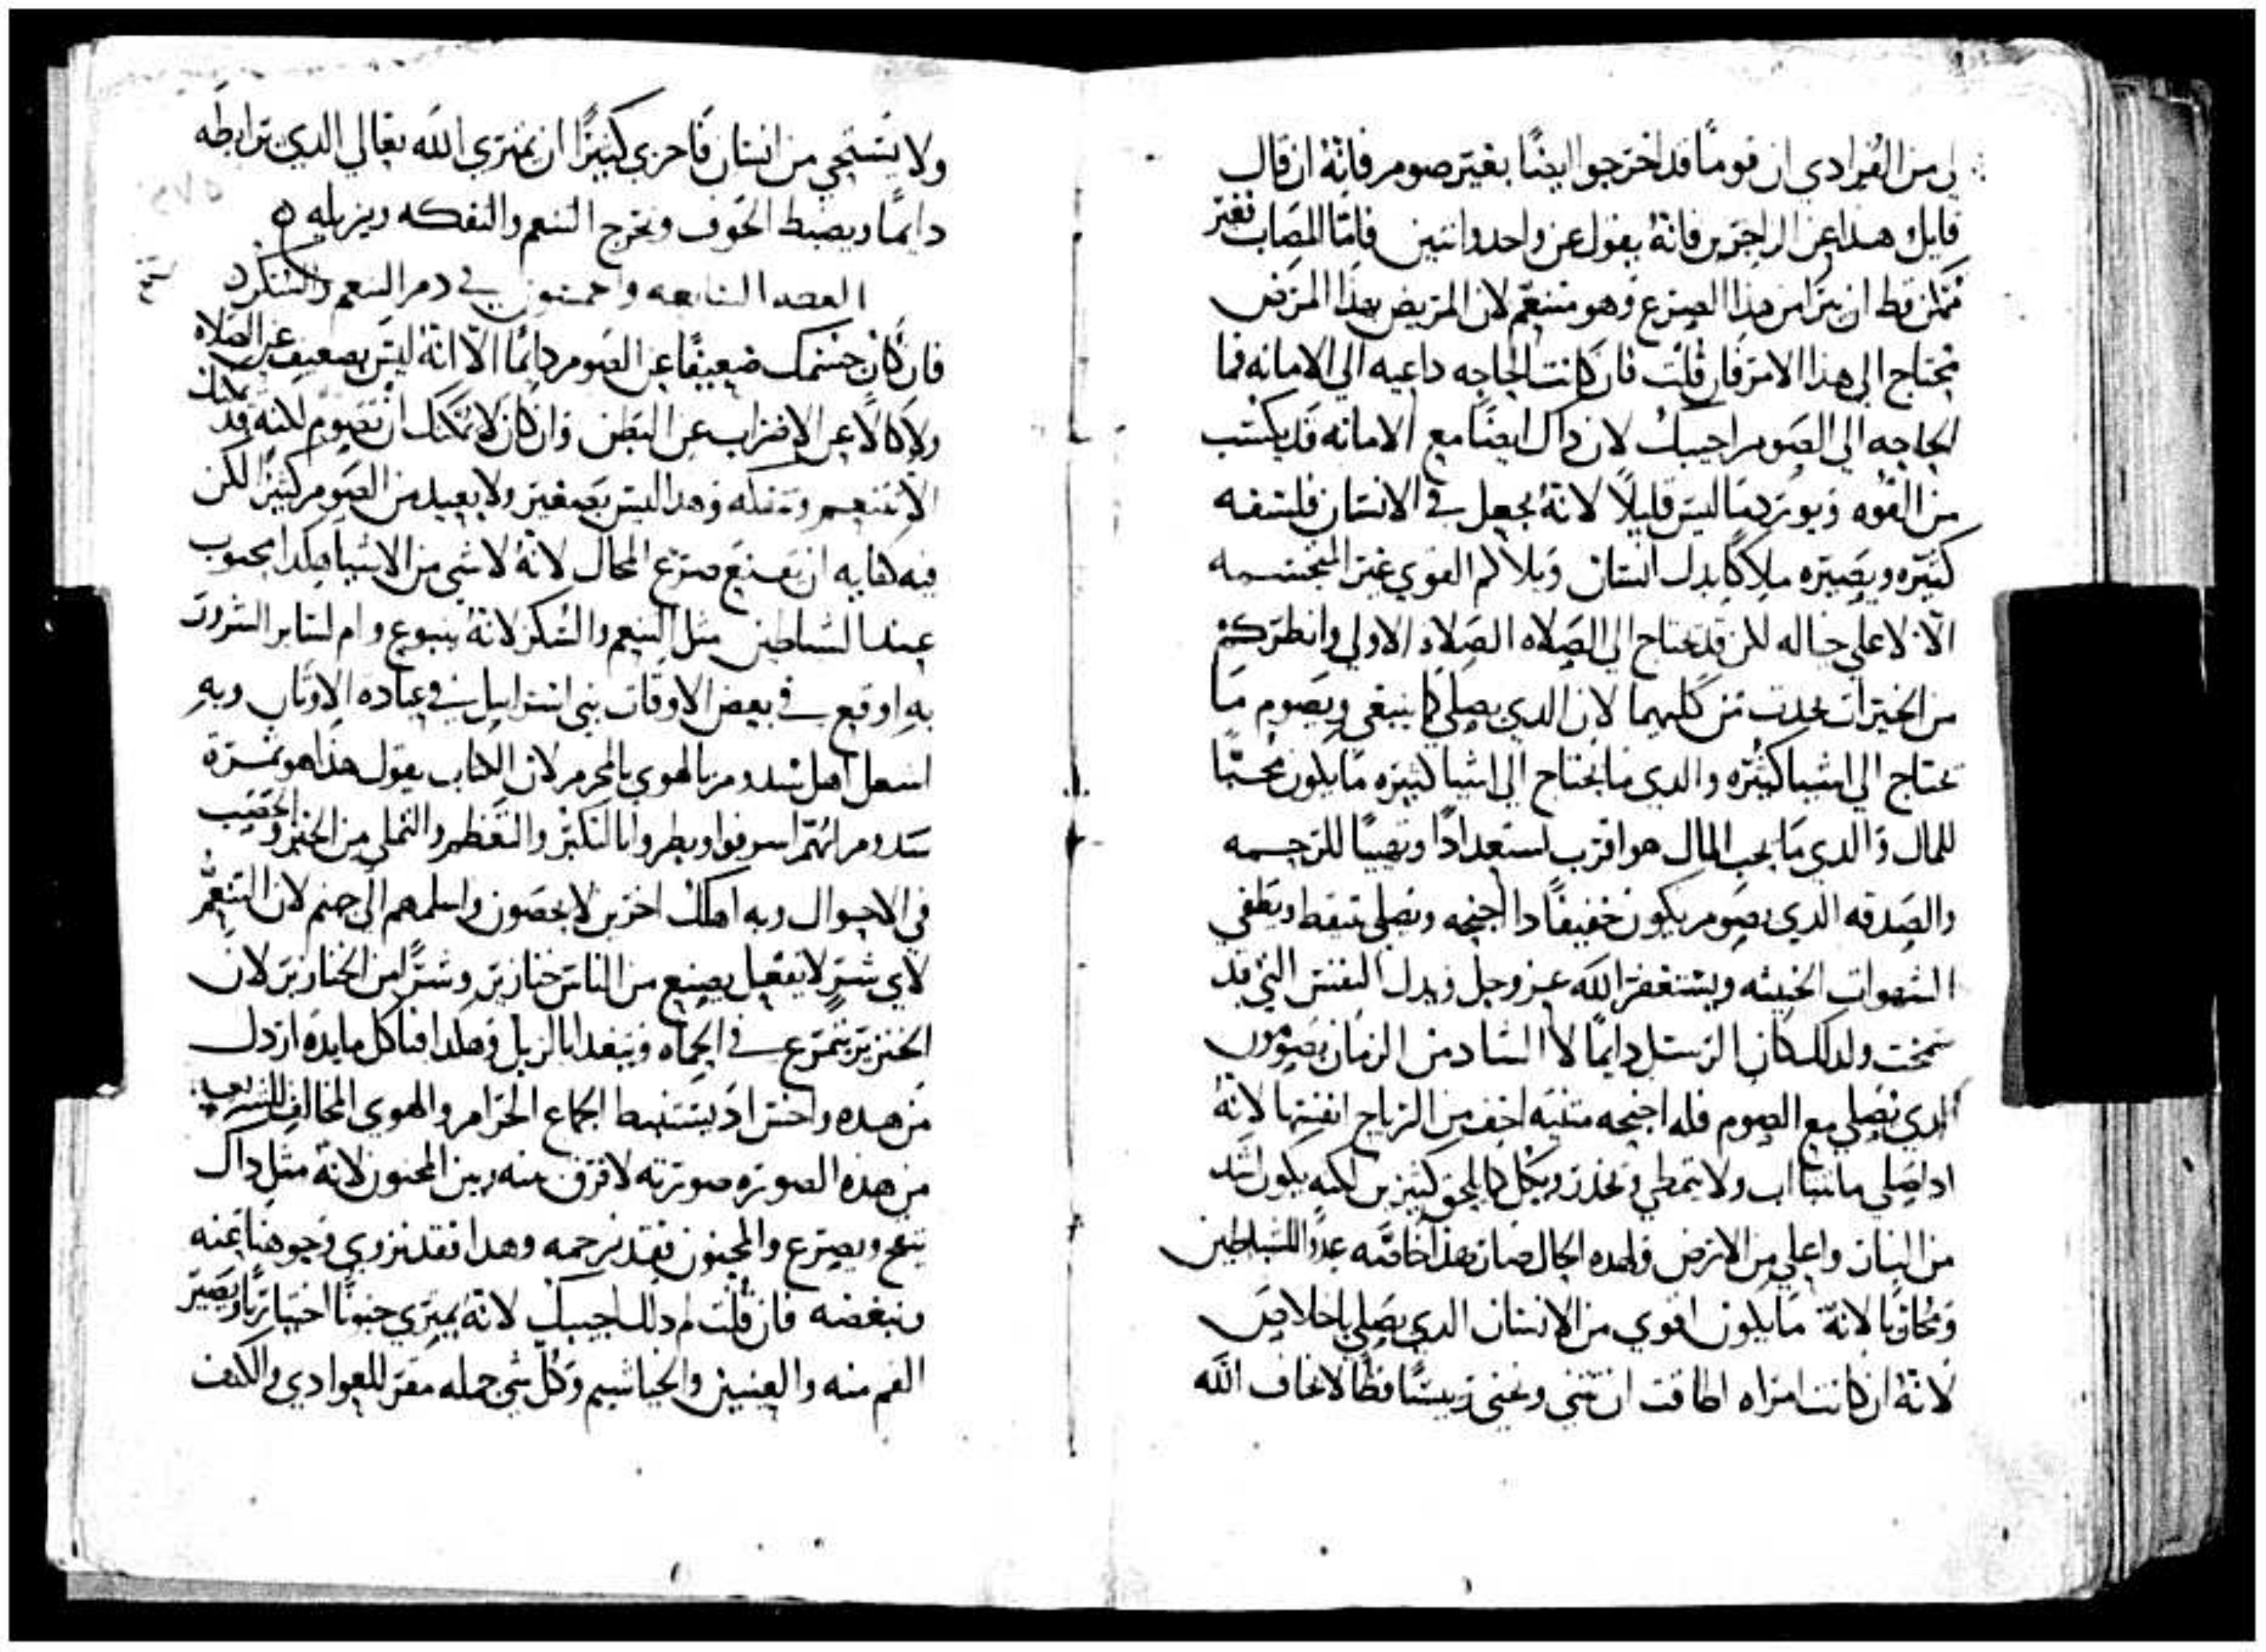 لي من الفرادي ان قوما قد اخرجوا ايضا بغير صوم فانه ان قال
قايل وهذا عن الزاجرين فانه يقول عن واحد واتنين فاما المصاب فغير
ممكن قط ان يبرا من هذا الصرع وهو متنعم لان المريض بهذا المرض
يحتاج الي هذا الامر فان قلت فان كانت الحاجه داعيه الي الامانه فما
الحاجه الي الصوم اجيبك لان ذاك ايضا مع الامانه قد يكسب
من القوه ويورد ما ليس قليلا لانه يجعل في الانسان فلسفه
كثيره ويصيره ملاكا بدل انسان ويلاكم القوي غير المتجسمه
الا لا علي حاله لكن قد يحتاج الي الصلاه الصلاه الاولي وانظر كم
من الخيرات يحدث من كليهما لان الذي يصلي كما ينبغي ويصوم ما
يحتاج الي اشيا كثيره والدي ما يحتاج الي اشيا كثيره ما يكون محبا
للمال والدي ما يحب المال هو اقرب استعدادا وتهيبا للرحمه
والصدقه الدي يصوم يكون خفيفا دا اجنحه ويصلي بتيقظ ويطفي
الشهوات الخبيثه ويستغفر الله عز وجل ويدل النفس التي قد
شمخت ولدلك كان الرسل دايما الا الشاد من الزمان يصومون
الدي يصلي مع الصوم فله اجنحه مثنيه اخف من الرياح انفسها لانه
ادا صلي ما يتتااب ولا يتمطي ويخدر ويكل كما يلحق كثيرين لكنه يكون اشد
من النيران واعلي من الارض فلهده الحال صار هدا خاصه عدوا للشياطين
ومحاربا لانه ما يكون اقوي من الانسان الدي يصلي باخلاص
لانه ان كانت امراه اطاقت ان تثني وتحني رييسا فظا لا يخاف الله
ولا يستحي من انسان فاحري كثيرا ان يمتري الله تعالي الدي يرابطه
دايما ويضبط الجوف ويخرج التنعم والتفكه ويزيله
العضه السابعه وخمسون في دم التنعم والسكر
فان كان جسمك ضعيفا عن الصوم دايما الا انه ليس بضعيف عن الصلاه
ولا كالا عن الاضراب عن البطن وان كان لا يمكنك ان تصوم لكنه قد يمكنك
الا تتنعم وتتفكه وهدا ليس بصغير ولا بعيد من الصوم كثيرا لكن
فيه كفايه ان يقمع صرع المحال لانه لا شي من الاشيا هكدا محبوب
عند الشياطين مثل التنعم والسكر لانه ينبوع وام لساير الشرور
به اوقع في بعض الاوقات بني اسراييل في عباده الاوتان وبه
اشعل اهل سدوم بالهوي المحرم لان الكتاب يقول هدا هو تمرة
سدوم انهم اسرفوا وبطروا بالتكبر والتعظم والتملي من الخبز والخصب
في الاحوال وبه اهلك اخرين لا يحصون واسلمهم الي جهنم لان التنعم
لاي شر لا يفعل يصنع من الناس خنازير وشرا من الخنازير لان
الخنزير يتمرغ في الحماه ويتغدا بالزبل وهكدا فياكل مايده اردل
من هده واخس اد يستنبط الجماع الحرام والهوي المخالف للشريعه
من هذه الصوره صورته لا فرق بينه وبين المجنون لانه مثل داك
يتقح ويصرع والمجنون فقد نرحمه وهدا فقد نزوي وجوهنا عنه
ونبغضه فان قلت لم دلك اجيبك لانه يمتري جنونا اختياريا ويصير
الفم منه والعينين والخياشيم وكل شي جمله مقر للعوادي والكنف